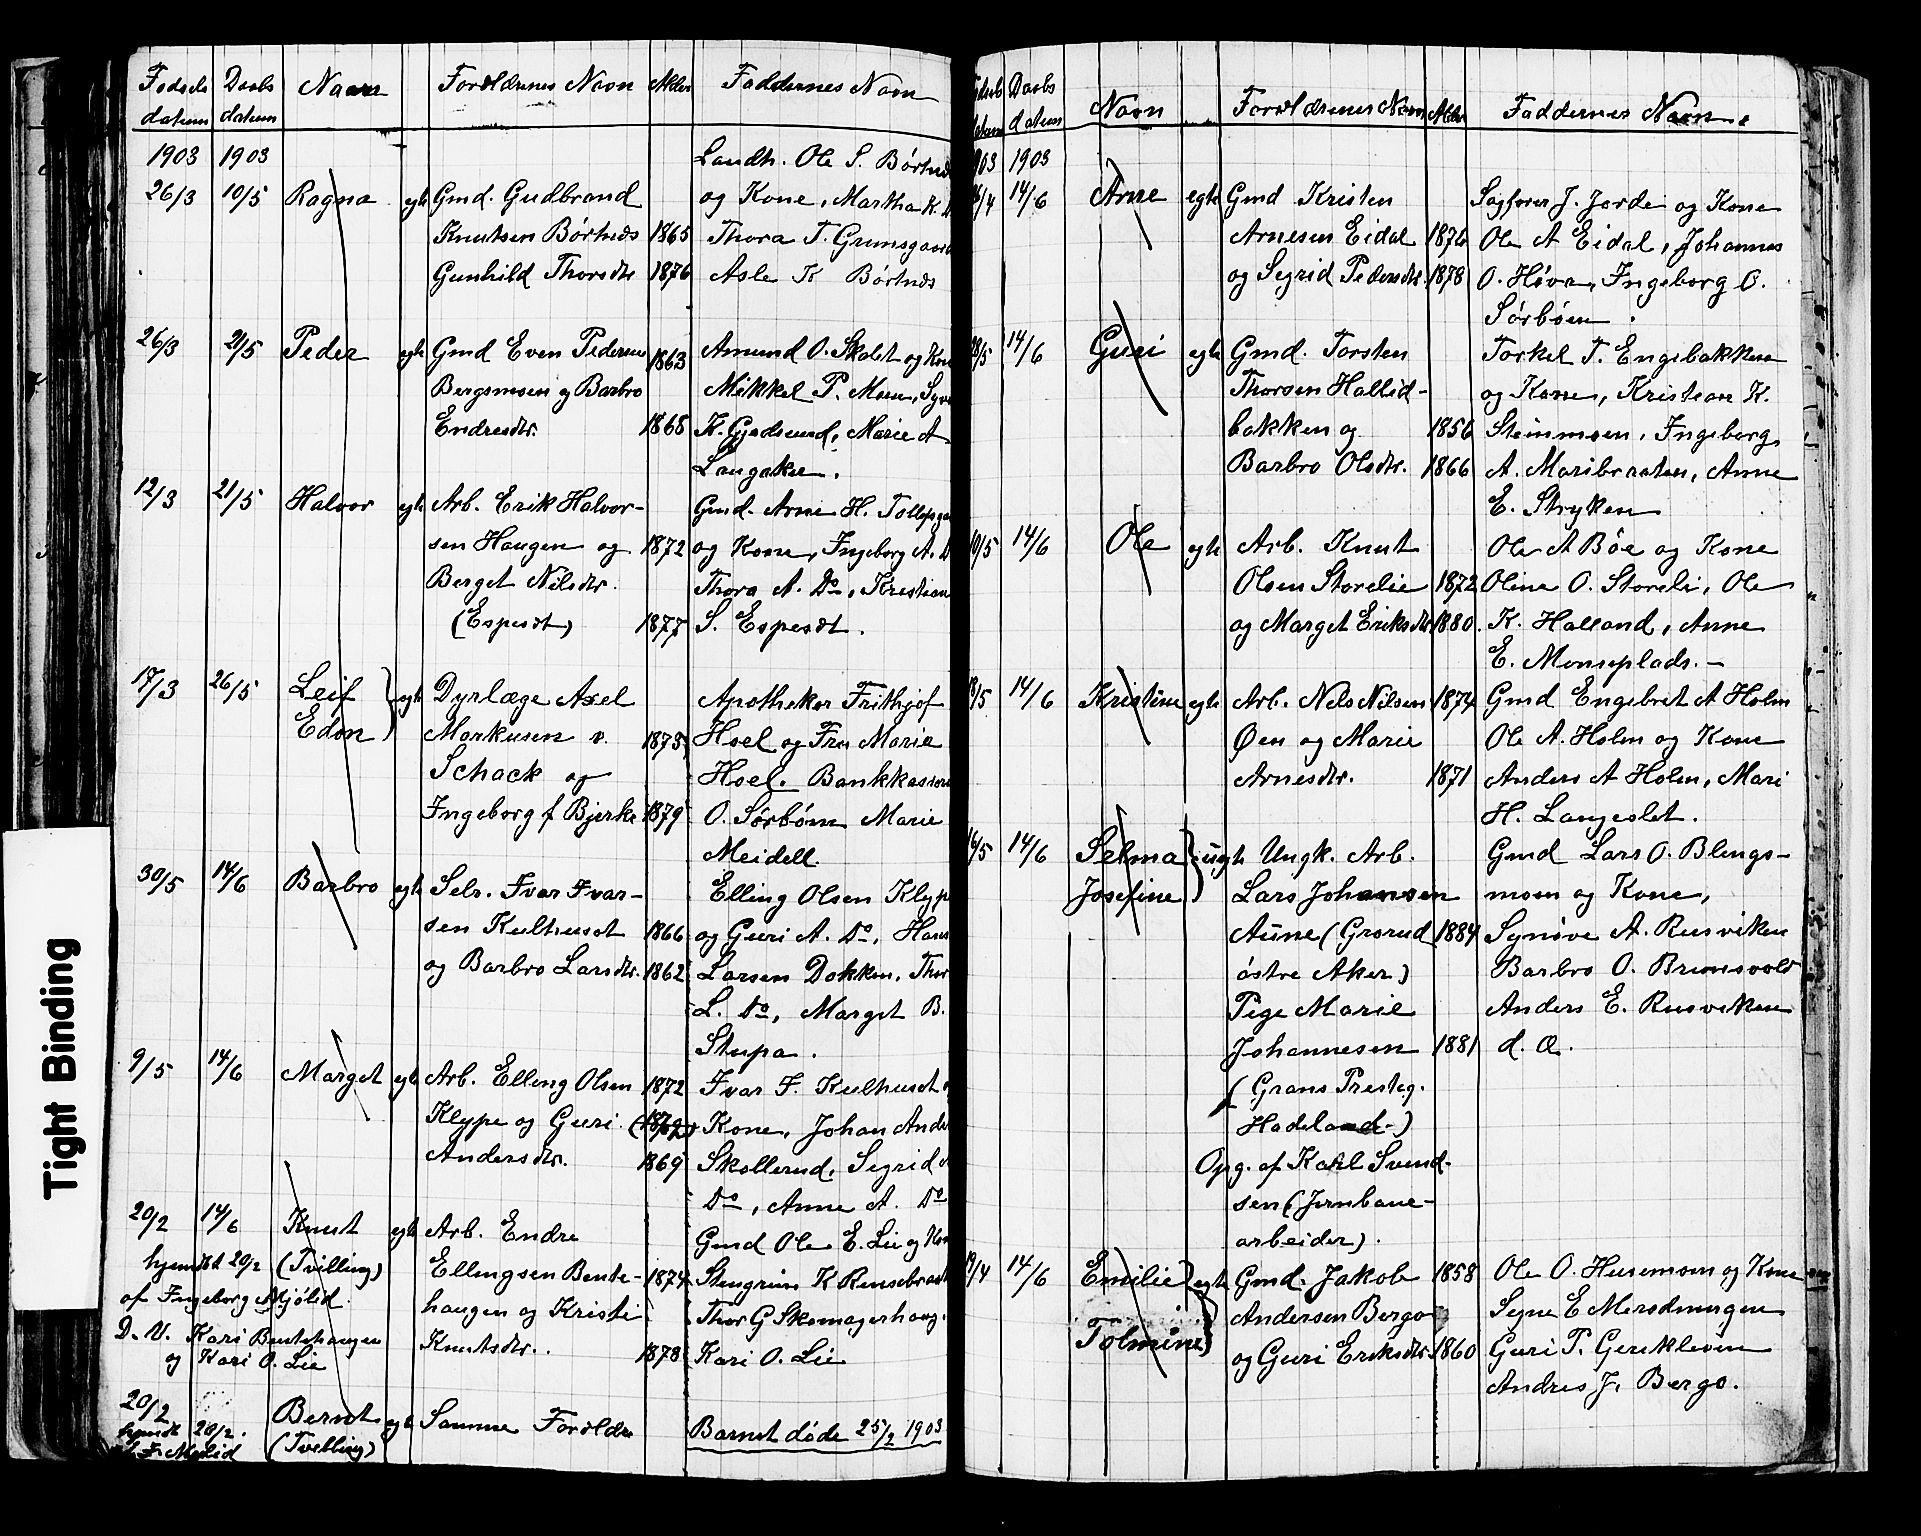 Tight Binding
Fødsels datum Daabs datum Navn Forældrenes Navn Alder Faddernes Navn
1903 1903 Landh. Ole S. Børtnes
26/3 10/5 Ragna egte Gmd. Gudbrand og Kone, Martha K. D
Knutsen Børtnes 1865 Thora T. Grimsgaard
Gunhild Thorsdtr 1876 Asle K Børtnes
26/3 21/5 Peder egte Gmd Even Pedersen 1863 Amund O. Skolet og Kone
Bergsmoen og Barbro Mikkel P. Moen, Syver
Endresdtr. 1868 K. Gjedsund, Marie A
Langaker.
12/3 21/5 Halvor egte Arb. Erik Halvor- Gmd. Arne H. Tollefsga
sen Haugen og 1872 og Kone, Ingeborg A. D
Berget Nilsdtr. Thora A. Do, Kristian
(Espeset) 1877 S. Espeset.
17/3 26/5 Leif egte Dyrlæge Axel Apotheker Frithjof
Edon Markusen v. 1875 Hoel og Fru Marie
Schack og Hoel. Bankkasserer
Ingeborg f Bjerke 1879 O. Sørbøen Marie
Meidell.
30/5 14/6 Barbro egte Selv. Ivar Ivar- Elling Olsen Klype
sen Kulhuset 1866 og Guri A. Do, Hans
og Barbro Larsdtr. 1862 Larsen Dokken, Thor
L. Do, Marget B.
Stupa.
9/5 14/6 Marget egte Arb. Elling Olsen 1872 Ivar I. Kulhuset og
Klype og Guri Kone, Johan Anders
Andersdtr. 1869 Skollerud, Sigrid A
Do, Anne A. Do
20/2 14/6 Knut egte Arb. Endre Gmd Ole E. Lie og Kone
hjemdt 20/2 (Tvilling) Ellingsen Bente- 1874 Stengrim K Rensebraaten
af Ingeborg Mjölid. haugen og Kristi Thor G Skomagerhaug.
D. V. Kari Bentehaugen Knutsdtr. 1878 Kari O. Lie
og Kari O. Lie
20/2 Bernt egte Samme Forældre Barnet døde 25/2 1903
hjemdt 20/2. (Tvilling)
af I. Mjölid
Fødsels datum Daabs datum Navn Forældrenes Navn Alder Faddernes Navn.
1903 1903
26/4 14/6 Arne egte Gmd Kristen Sagfører J. Jorde og Kone
Arnesen Eidal 1876 Ole A Eidal, Johannes
og Sigrid Pedersdtr. 1878 O. Høva, Ingeborg O.
Sørbøen.
28/5 14/6 Guri egte Gmd. Torsten Torkel T. Engebakken
Thorsen Hallid- og Kone, Kristian K.
bakken og 1856 Steinmoen, Ingeborg
Barbro Olsdtr. 1866 A. Maribraaten, Anne
E. Stryken
10/5 14/6 Ole egte Arb. Knut Ole A Bøe og Kone
Olsen Storelie 1872 Oline O. Storeli, Ole
og Marget Eriksdtr. 1880. K. Halland, Anne
E. Monseplads. -
18/5 14/6 Kristine egte Arb. Nels Nilsen 1874 Gmd Engebret A Holm
Øen og Marie Ole A. Holm og Kone
Arnesdtr. 1871 Anders A Holm, Mari
H. Langeslet.
16/5 14/6 Selma uegte Ungk. Arb. Gmd Lars O. Blengs-
Josefine Lars Johansen moen og Kone,
Aune (Grorud 1884 Synøve A. Rusviken
østre Aker) Barbro O. Brunsvold
Pige Marie Anders E. Rusviken
Johannesen 1881 d. Æ.
(Grans Presteg.
Hadeland-)
Opg. af Karl Svend-
sen (Jernbane-
arbeider).
19/4 14/6 Emilie egte Gmd. Jakob 1858 Ole O. Husemoen og Kone
Andersen Bergo Segne E Mersdmurgen
Tolmine og Guri Eriksdtr. 1860 Guri T. Gerekleven
Andres J. Bergo.